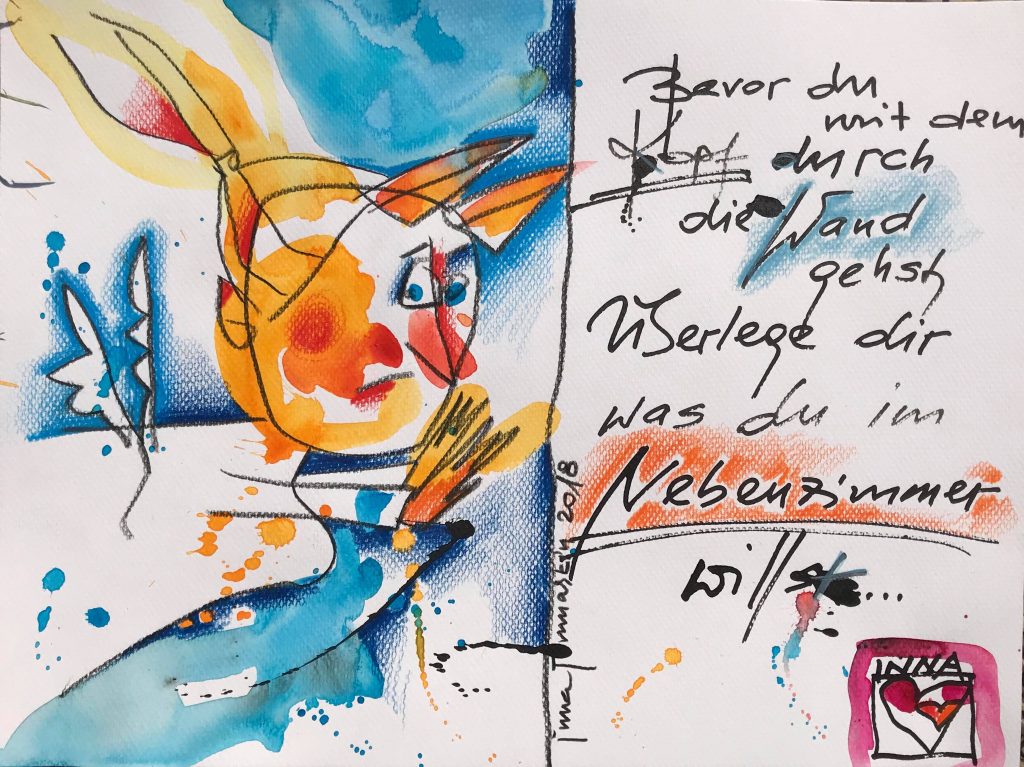 Bevor du
mit dem
Kopf durch
die Wand
gehst
Überlege dir
was du im
Nebenzimmer
willst...
Inna 2018
INNA